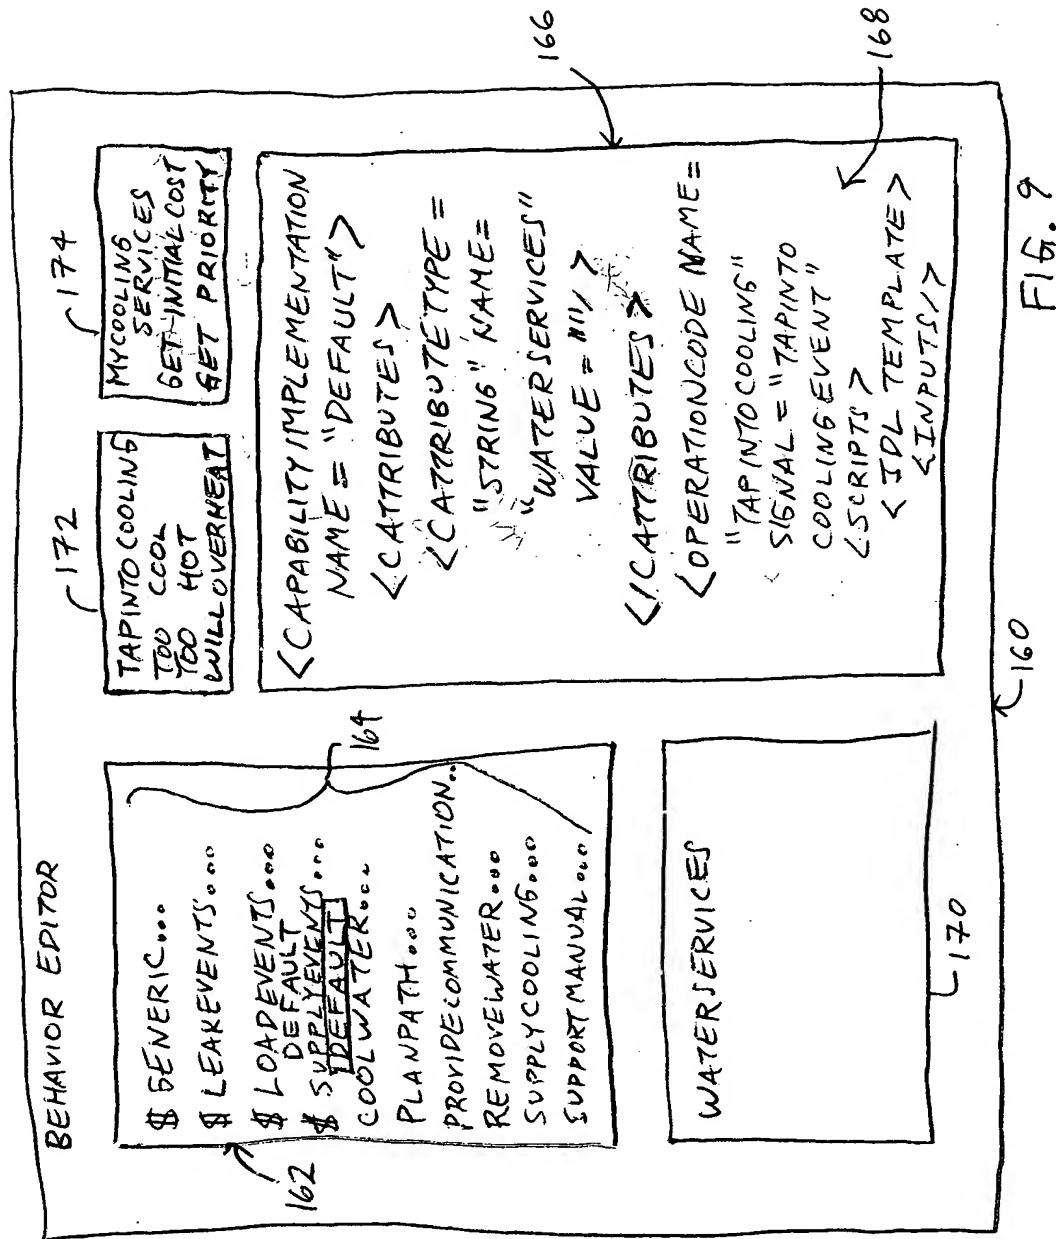 BEHAVIOR EDITOR
$ GENERIC...
$ LEAKEVENTS...
$ LOADEVENTS...
DEFAULT
$ SUPPLYEVENTS...
DEFAULT
COOLWATER...
PLANPATH...
PROVIDECOMMUNICATION...
REMOVEWATER...
SUPPLYCOOLING...
SUPPORTMANUAL...
162
164
WATERSERVICES
170
172
TAPINTOCOOLING
TOO COOL
TOO HOT
WILLOVERHEAT
174
MYCOOLING
SERVICES
GET-INITIALCOST
GET PRIORITY
<CAPABILITYIMPLEMENTATION
NAME = "DEFAULT">
<CATTRIBUTES>
<CATTRIBUTETYPE =
"STRING" NAME=
"WATERSERVICES"
VALUE = ""/>
</CATTRIBUTES>
<OPERATIONCODE NAME=
"TAPINTOCOOLING"
SIGNAL = "TAPINTO
COOLINGEVENT"
<SCRIPTS>
<JDL TEMPLATE>
<INPUTS/>
166
168
160
FIG. 9